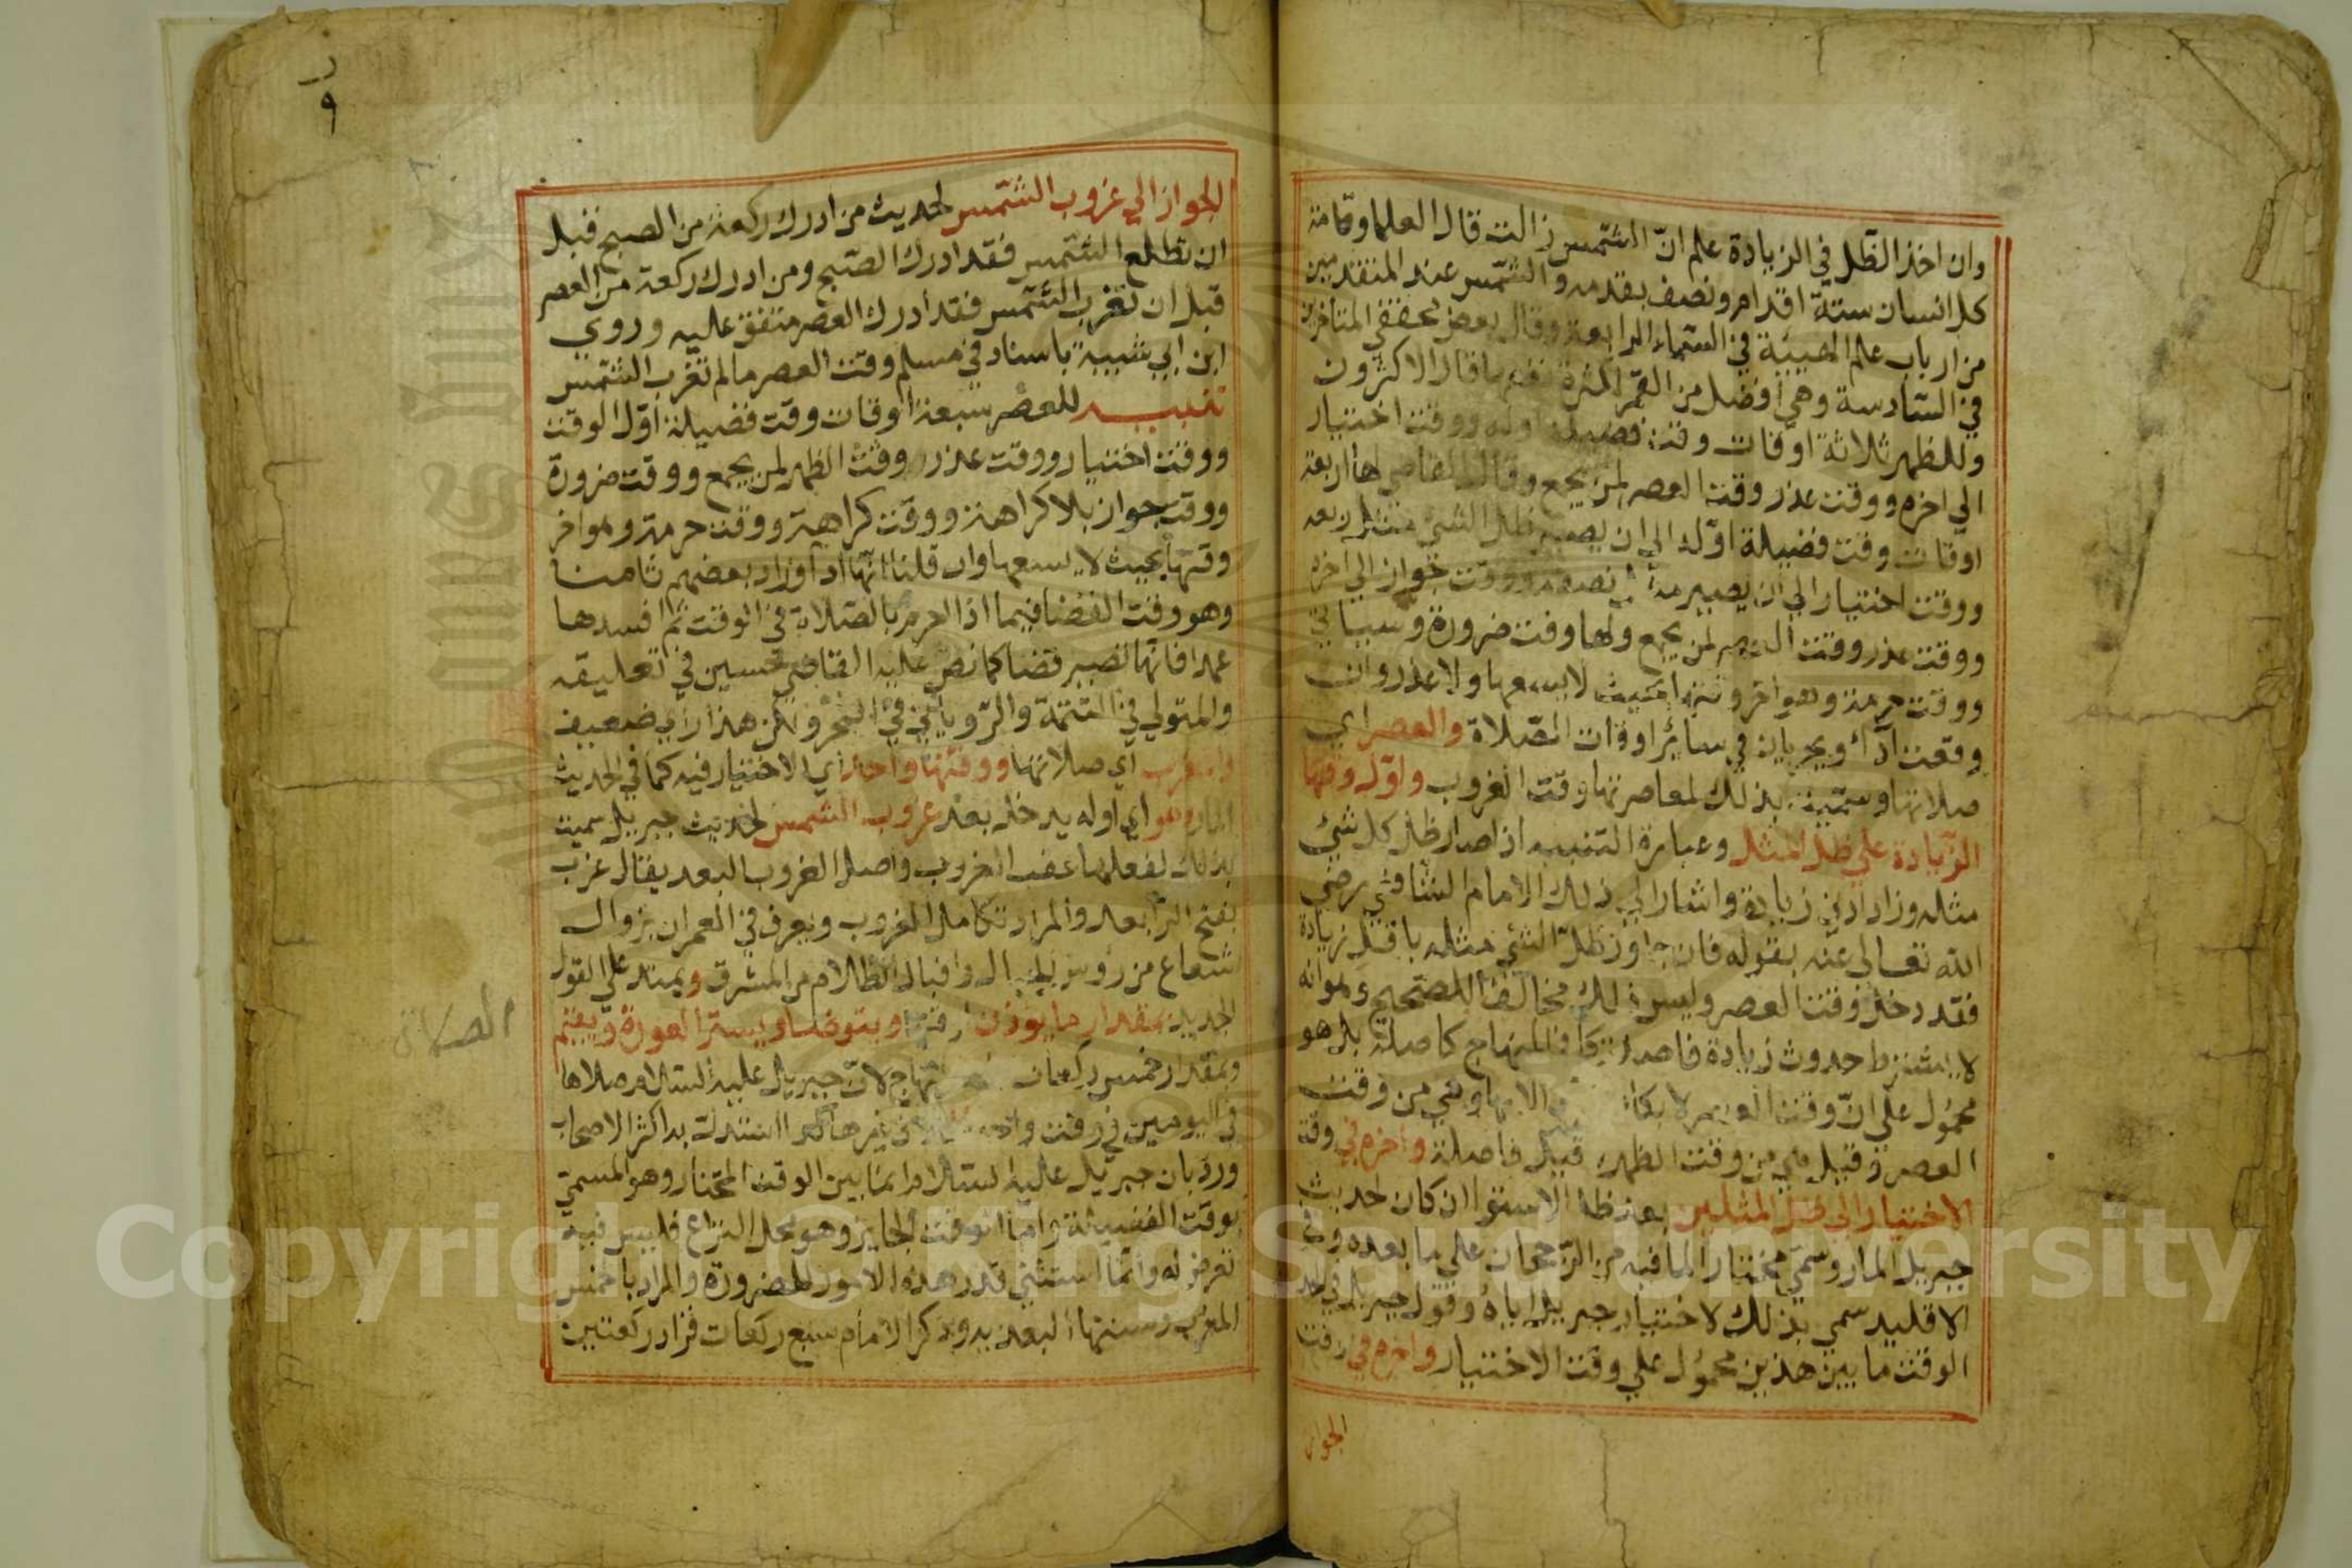 وان اخذ الظل في الزيادة علم ان الشمس زالت قال العلما وقامة
كل انسان ستة اقدام ونصف بقدمه والشمس عند المتقدمين
من ارباب علم الهيئة في السماء الرابعة وقال بعض محققي المتاخرين
في السادسة وهي افضل من القمر لكثرة نفعها قال الاكثرون
وللظهر ثلاثة اوقات وقت فضيلة اوله ووقت اختيار
الي اخره ووقت عذر وقت العصر لمن يجمع وقال القاضي لها اربعة
اوقات وقت فضيلة اوله الي ان يصير ظل الشئ مثل ربعه
ووقت اختيار الي ان يصير مثل نصفه ووقت جواز الي اخره
ووقت عذر وقت العصر لمن يجمع ولها وقت ضرورة وسياتي
ووقت حرمة وهو اخر وقتها بحيث لا يسعها ولا عذر وان
وقعت اداء ويجريان في سائر اوقات الصلاة والعصر اي
صلاتها وسميت بذلك لمعاصرتها وقت الغروب واول وقتها
الزيادة علي ظل المثل وعبارة التنبيه اذا صار ظل كل شئ
مثله وزاد ادني زيادة واشار الي ذلك الامام الشافعي رضي
الله تعالي عنه بقوله فان جاوز ظل الشئ مثله باقل زيادة
فقد دخل وقت العصر وليس ذلك مخالفا للصحيح وهو انه
لا يشترط حدوث زيادة فاصلة كما في المنهاج كاصله بل هو
محمول علي ان وقت العصر لا يكاد الا بها وهي من وقت
العصر وقيل هي من وقت الظهر وقيل فاصلة واخره في وقت
الاختيار الي ظل المثلين بعد ظل الاستوا ان كان لحديث
جبريل المار وسمي مختارا لما فيه من الرجحان علي ما بعده وفي
الاقليد سمي بذلك لاختيار جبريل اياه وقول جبريل في الحديث
الوقت ما بين هذين محمول علي وقت الاختيار واخره في وقت
الجواز
٩
الجواز الي غروب الشمس لحديث من ادرك ركعة من الصبح قبل
ان تطلع الشمس فقد ادرك الصبح ومن ادرك ركعة من العصر
قبل ان تغرب الشمس فقد ادرك العصر متفق عليه وروي
ابن ابي شيبة باسناد في مسلم وقت العصر ما لم تغرب الشمس
تنبيه للعصر سبعة اوقات وقت فضيلة اول الوقت
ووقت اختيار ووقت عذر وقت الظهر لمن يجمع ووقت ضرورة
ووقت جواز بلا كراهة ووقت كراهية ووقت حرمة وهو اخر
وقتها بحيث لا يسعها وان قلنا انها اداء وزاد بعضهم ثامنا
وهو وقت القضا فيما اذا احرم بالصلاة في الوقت ثم افسدها
عمدا فانها تصير قضا كما نص عليه القاضي حسين في تعليقه
والمتولي في التتمة والروياني في البحر ولكن هذا راي ضعيف
والمغرب اي صلاتها ووقتها واحد اي لا اختيار فيه كما في الحديث
المار وهو اي اوله يدخل بعد غروب الشمس لحديث جبريل سميت
بذلك لفعلها عقب الغروب واصل الغروب البعد يقال غرب
بفتح الرا بعد والمراد تكامل الغروب ويعرف في العمران بزوال
شعاع من رؤوس الجبال واقبال الظلام من المشرق ويمتد علي القول
الجديد بمقدار ما يؤذن لوقتها ويتوضا ويستر العورة ويقيم
الصلاة
وبمقدار خمس ركعات المنهاج لان جبريل عليه السلام صلاها
في اليومين في وقت واحد غيرها كذا استدل به اكثر الاصحاب
ورد بان جبريل عليه السلام انما بين الوقت المختار وهو المسمي
بوقت الفضيلة واما الوقت الجايز وهو محل النزاع فليس فيه
تعرض له وانما استثني قدر هذه الامور للضرورة والمراد بالخمس
المغرب وسنتها البعدية وذكر الامام سبع ركعات فزاد ركعتين
Copyright © King Saud University